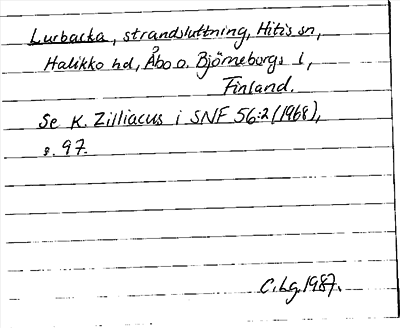 Lurbacka, strandsluttning, Hitis sn,
Halikko hd, Åbo o. Björneborgs l,
Finland.
Se K. Zilliacus i SNF 56:2 (1968),
s. 97.
C. Lg. 1987.